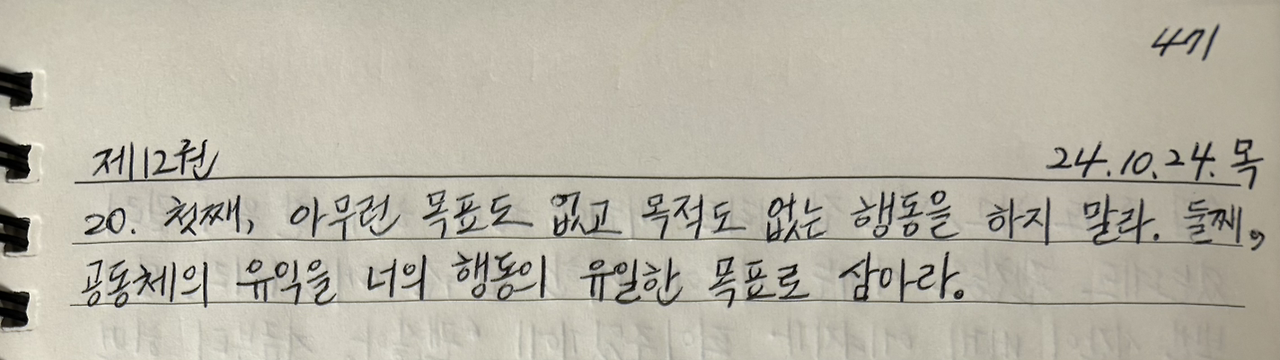 471
제12권 24.10.24.목
20. 첫째, 아무런 목표도 없고 목적도 없는 행동을 하지 말라. 둘째,
공동체의 유익을 너의 행동의 유일한 목표로 삼아라.